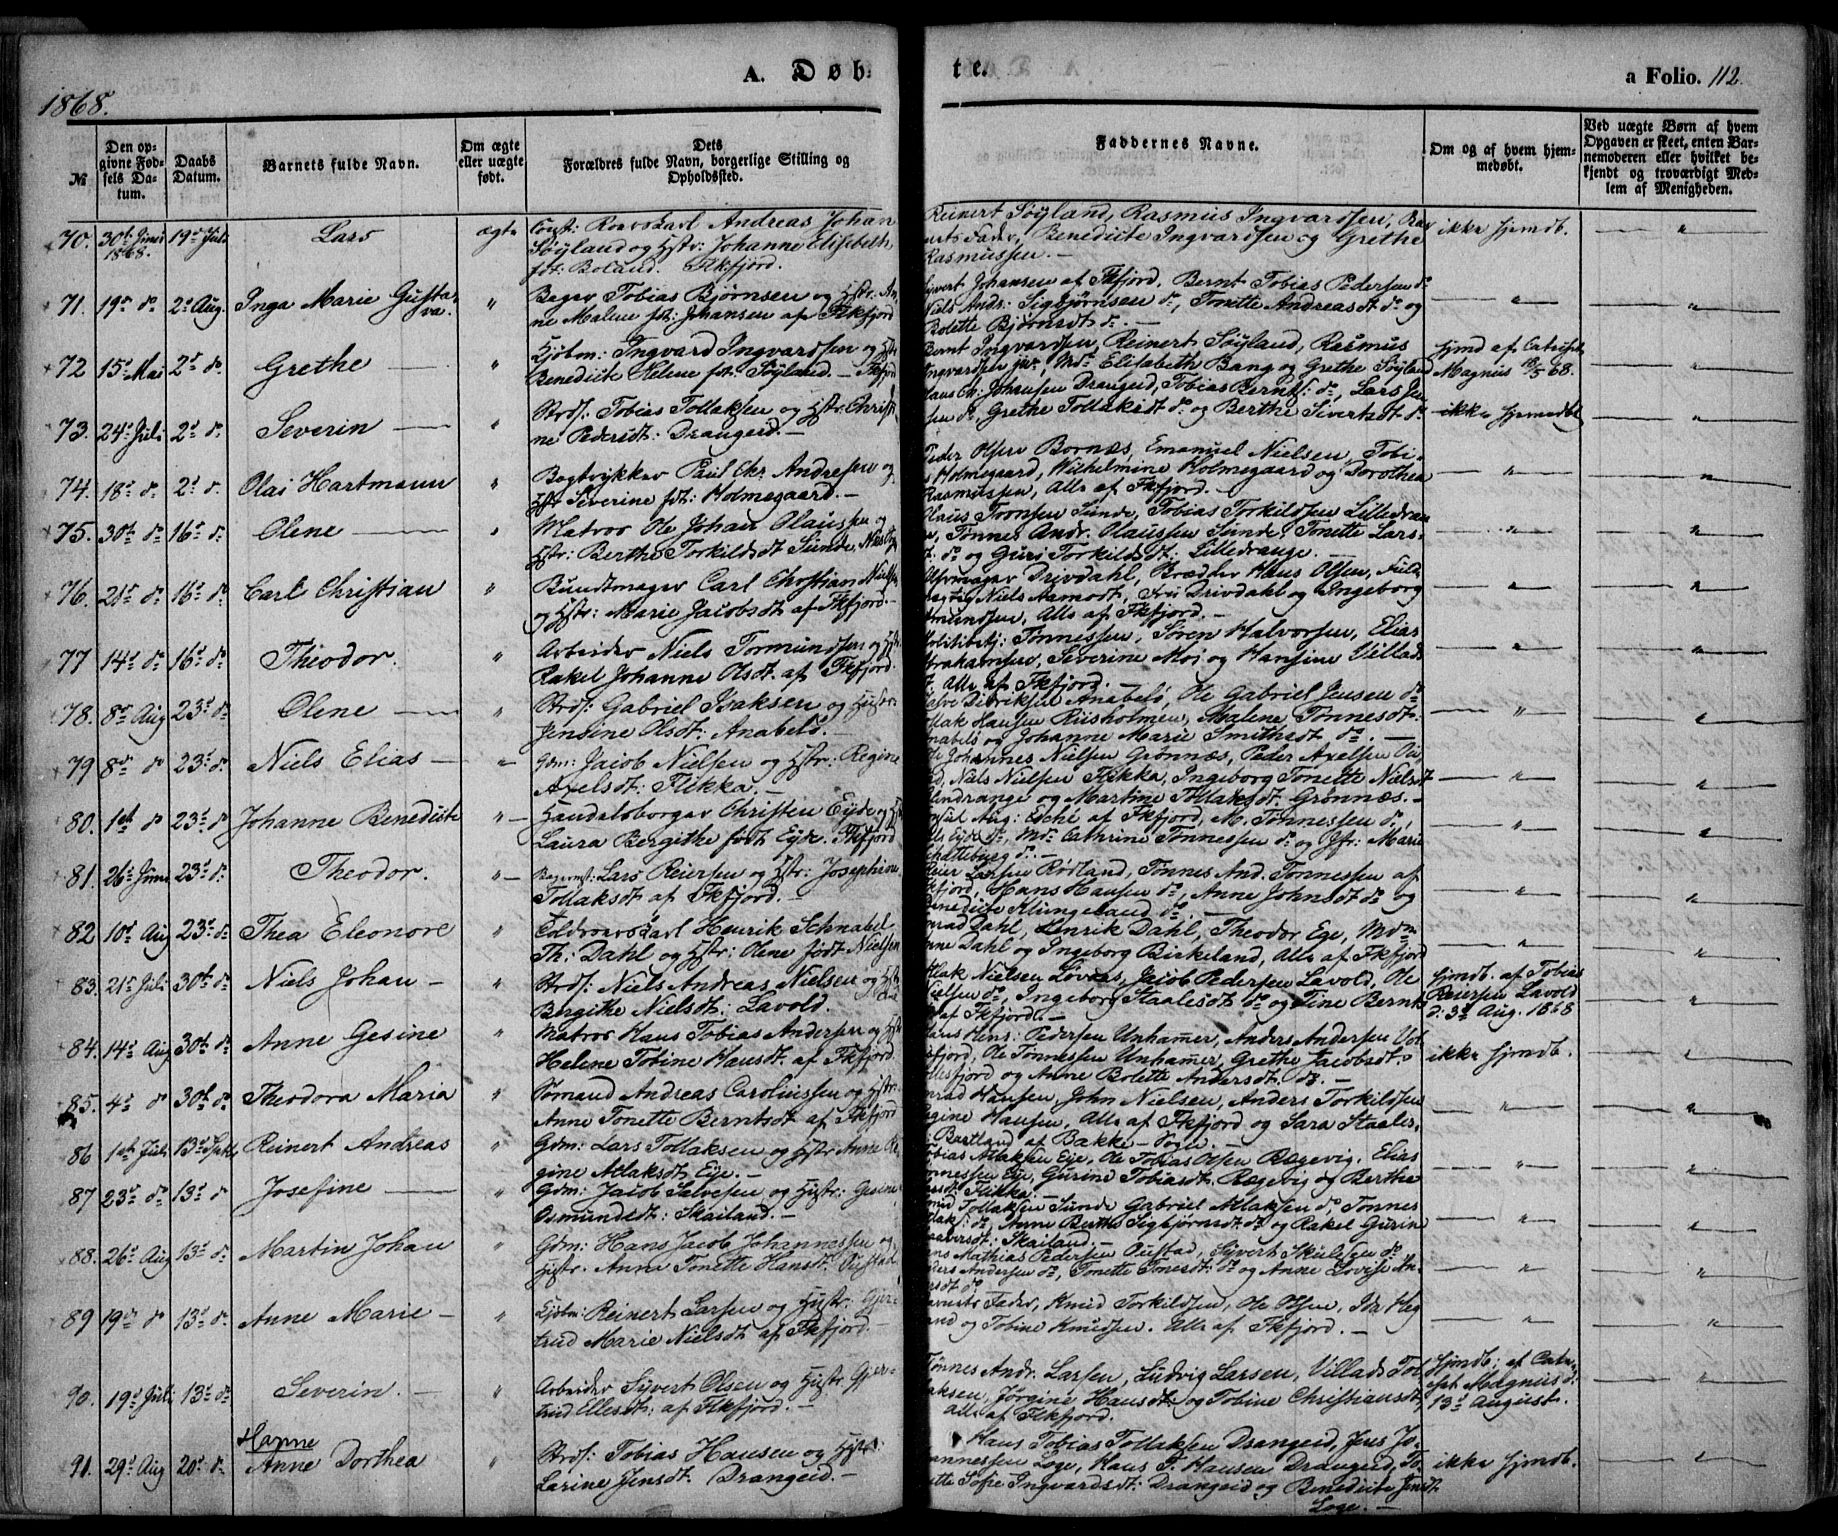 A. Døb-
te.
a Folio. 112.
1868.
№
Den opgivne Fødsels Datum.
Daabs Datum.
Barnets fulde Navn.
Om ægte eller uægte født.
Dets Forældres fulde Navn, borgerlige Stilling og Opholdssted.
Faddernes Navne.
Om og af hvem hjemmedøbt.
Ved uægte Børn af hvem Opgaven er skeet, enten Barnemoderen eller hvilket bekjendt og troværdigt Medlem af Menigheden.
70. 30te Juni 1868. 19de Juli Lars ægte
Andreas Johan
Søyland og Hstr: Johanne Elisebeth,
føt: Boland. Flkfjord.
Reinert Søyland, Rasmus Ingvardsen, Bar
nets Fader, Benedicte Ingvardsen og Grethe
Rasmussen. —
ikke hjemdb. — " —
71. 19de do 2d Aug. Inga Marie Gustava. "
Bager Tobias Bjørnsen og Hstr: An-
ne Malene føt: Johansen af Flkfjord
Syvert Johansen af Flkfjord, Bernt Tobias Pedersen do
Niels Ands: Sigbjørnsen do, Tonette Andreasdt do og
Bolette Bjørnsdt do. —
— " —
72 15d Mai 2d do. Grethe — "
Kjøbm: Ingvard Ingvardsen og Hstr
Benedicte Helene føt: Søyland. — Flkfjord
Bernt Ingvardsen, Reinert Søyland, Rasmus
Ingvardsen jnr, Md. Elisabeth Bang og Grethe Søyland
Hjmd af
Magnus 68.
73. 24d Juli 2d do. Severin — "
Strds: Tobias Tollaksen og Hstr: Christi-
ne Pedersdt: Drangeid. —
Hans Chr: Johansen Drangeid, Tobias Bernts: do, Lars Jen
sen do, Grethe Tollaksdt do og Berthe Sivertsdt do
ikke hjemmedbt
74. 18d do. 2d do. Olai Hartmann "
Bogtrykker Paul Chr. Andresen og
Hstr Severine føt: Holmegaard. —
Peder Olsen Bornæs, Emanuel Nielsen, Tobi-
s Holmegaard, Wilhelmine Holmegaard og Dorothea
Rasmussen, Alle af Flkfjord. —
— " —
75. 30te do 16d do. Olene —
Matros Ole Johan Olaussen og
Hstr: Berthe Torkildsdt Sunde,
Olaus Tronsen Sunde, Tobias Torkildsen Lilledran
Tønnes Andr. Olaussen Sunde, Tonette Lars-
dt. do og Guri Torkildsdt: Lilledrange. —
— " —
76. 21d do 16d do. Carl Christian "
Bundtmager Carl Christian Nielsen
og Hstr: Marie Jacobsdt af Flkfjord. —
Uhrmager Drivdahl, Hans Olsen,
Niels Aamodt, Fru Drivdahl og Ingeborg
Amundsen, Alle af Flkfjord. —
— " —
77 14d do 16d do. Theodor. "
Arbeider Niels Tormundsen og Hstr
Rakel Johanne Olsdt. af Flkfjord.
Politibetj: Tønnessen, Søren Halvorsen, Elias
Abrahamsen, Severine Moi og Hansine Villads
dt, Alle af Flkfjord. —
— " —
78. 8de Aug 23d do Olene — "
Strds: Gabriel Isaksen og Hustr:
Jensine Olsdt: Anabelø. —
Salve Didriksen Anabelø, Ole Gabriel Jensen do
Tollak Hansen Riisholmen, Malene Tønnesdt:
Anabelø og Johanne Marie Smithsdt do. —
— " —
79 8de do 23d do. Niels Elias — "
Gdm: Jacob Nielsen og Hstr: Regine
Axelsdt: Flikka. —
Ole Johannes Nielsen Grønnæs, Peder Axelsen
Niels Nielsen Flikka, Ingeborg Tonette Nielsdt
Lindrange og Martine Tollaksdt. Grønnæs. —
— " —
80. 1ste do 23d do Johanne Benedicte "
Handelsborger Christen Eyde og Hstr
Laura Bergithe født Eyde. Flkfjord
Aug: Esche af Flkfjord, M. Tønnessen do,
Eyde do, Md. Cathrine Tønnessen do og Jfr: Marie
— " —
81. 26de Juni 23d do. Theodor. "
Lars Reiersen og Hstr: Josephine
Tollaksdt af Flkfjord. —
Reier Larsen Rødland, Tønnes And. Tønnessen af
Flkfjord, Hans Hansen do, Anne Johnsdt do og
Benedicte Klungeland do. —
— " —
82 10d Aug 23d do Thea Eleonore "
Toldroerskarl Henrik Schnabel
Th: Dahl og Hstr: Olene født Nielsen
Konrad Dahl, Henrik Dahl, Theodor Ege, Mdm
Anne Dahl og Ingeborg Birkeland, Alle af Flkfjord
— " —
83. 21d Juli 30te do Niels Johan — "
Strds: Niels Andreas Nielsen og Hstr
Bergithe Nielsdt: Lavold.
Atlak Nielsen Løvaas, Jacob Pedersen Lavold, Ole
Nielsen do, Ingeborg Staalesdt do og Tine Bernts
dt af Flkfjord. —
Hjmdb. af Tobias
Reiersen Lavold
d: 3d Aug. 1868
84. 14d Aug 30te do Anne Gesine "
Matros Hans Tobias Andersen og Hstr
Helene Tobine Hansdt. af Flkfjord.
Hans Hens: Pedersen Unhammer, Anders Andersen
Ole Tønnessen Unhammer, Grethe Jacobsdt.
og Anne Bolette Andersdt. do. —
ikke hjemdb.
85. 4d do 30te do. Theodora Maria "
Sømand Andreas Caroliussen og Hstr:
Anne Tonette Berntsdt af Flkfjord
Konrad Hansen, John Nielsen, Anders Torkildsen
Regine Hansen, Alle af Flkfjord og Sara Staales-
dt Bartland af Bakke-Sogn. —
— " —
86 1ste Juli 13d Septbr Reinert Andreas "
Gdm: Lars Tollaksen og Hstr Anne Re
gine Atlaksdt Eye. —
Tobias Atlaksen Eye, Ole Tobias Olsen Rægevig, Elias
Tønnessen Eye, Gurine Tobiasdt. Rægevig og Berthe
Flikke. —
— " —
87 23d do. 13d do Josefine — "
Gdm: Jacob Salvesen og Hstr: Gesine
Osmundsdt: Skailand. —
Tollaksen Sunde Gabriel Atlaksen do, Tønnes
Atlaks: do, Anne Berthe Sigbjørnsdt do og Rakel Gurine
Skailand. —
— " —
88. 26d Aug 13d do. Martin Johan "
Gdm: Hans Jacob Johannessen og
Hstr. Anne Tonette Hansdt. Oustad
Hans Mathias Pedersen Oustad, Syvert Skulesen do
Anders Andersen do, Tonette Tønesdt: do og Anne Lovise An-
dersdt do
— " —
89 19de do 13d do. Anne Marie — "
Kjøbm: Reinert Larsen og Hustr: Gjer-
trud Marie Nielsdt af Flkfjord. —
Barnets Fader, Knud Torkildsen, Ole Olsen, Ida Heg
land og Tobine Knudsen. Alle af Flkfjord. —
— " —
90. 19d Juli 13d do Severin. — "
Arbeider Syvert Olsen og Hustr Gjer-
trud Ellesdt: af Flkfjord. —
Tønnes Andr. Larsen, Ludvig Larsen, Villads Tol
laksen, Jørgine Hansdt og Tobine Christiansdt,
alle af Flkfjord.
Hjmdb: af Cate-
ket Magnus d.
13d August.
91. 29d Aug 20d do. Hanne
Anne Dorthea "
Strds: Tobias Hansen og Hstr:
Larine Jensdt: Drangeid. —
Hans Tobias Tollaksen Drangeid, Jens Jo-
hannessen Loge, Hans T. Hansen Drangeid, To-
nette Sofie Ingvardsdt: Drangeid og Benedicte Jensdt
Loge. —
ikke hjemdb.